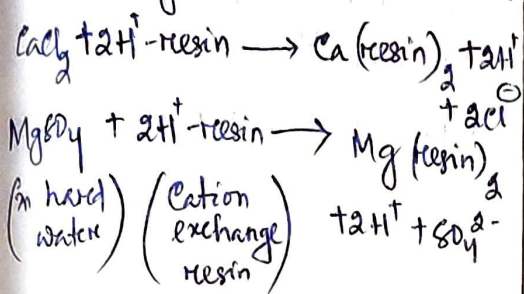 CaCl₂ + 2H⁺-resin ⟶ Ca (resin)₂ + 2H⁺
+ 2Cl⊖
MgSO₄ + 2H⁺-resin ⟶ Mg (resin)₂
(In hard water) (Cation exchange resin) + 2H⁺ + SO₄²⁻